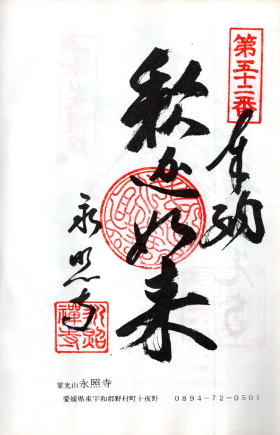 第五十二番
奉納
釈迦如来
永照寺
永照
禅寺
永照寺
愛媛県東宇和郡野村町十夜野 0894-72-0501